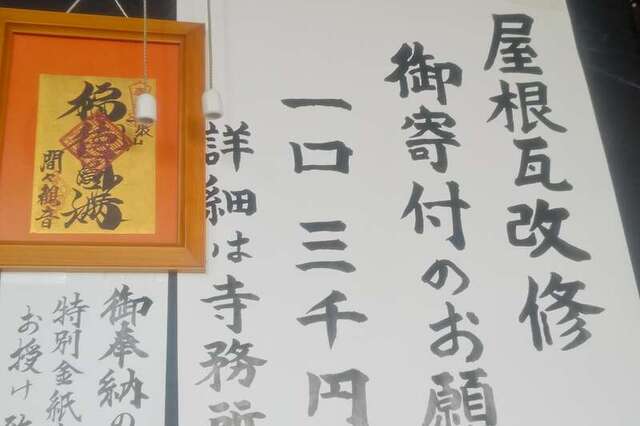 屋根瓦改修
御寄付のお願
一口三千円
詳細は寺務所
福徳円満
間々観音
御奉納の
特別金紙
お授け致